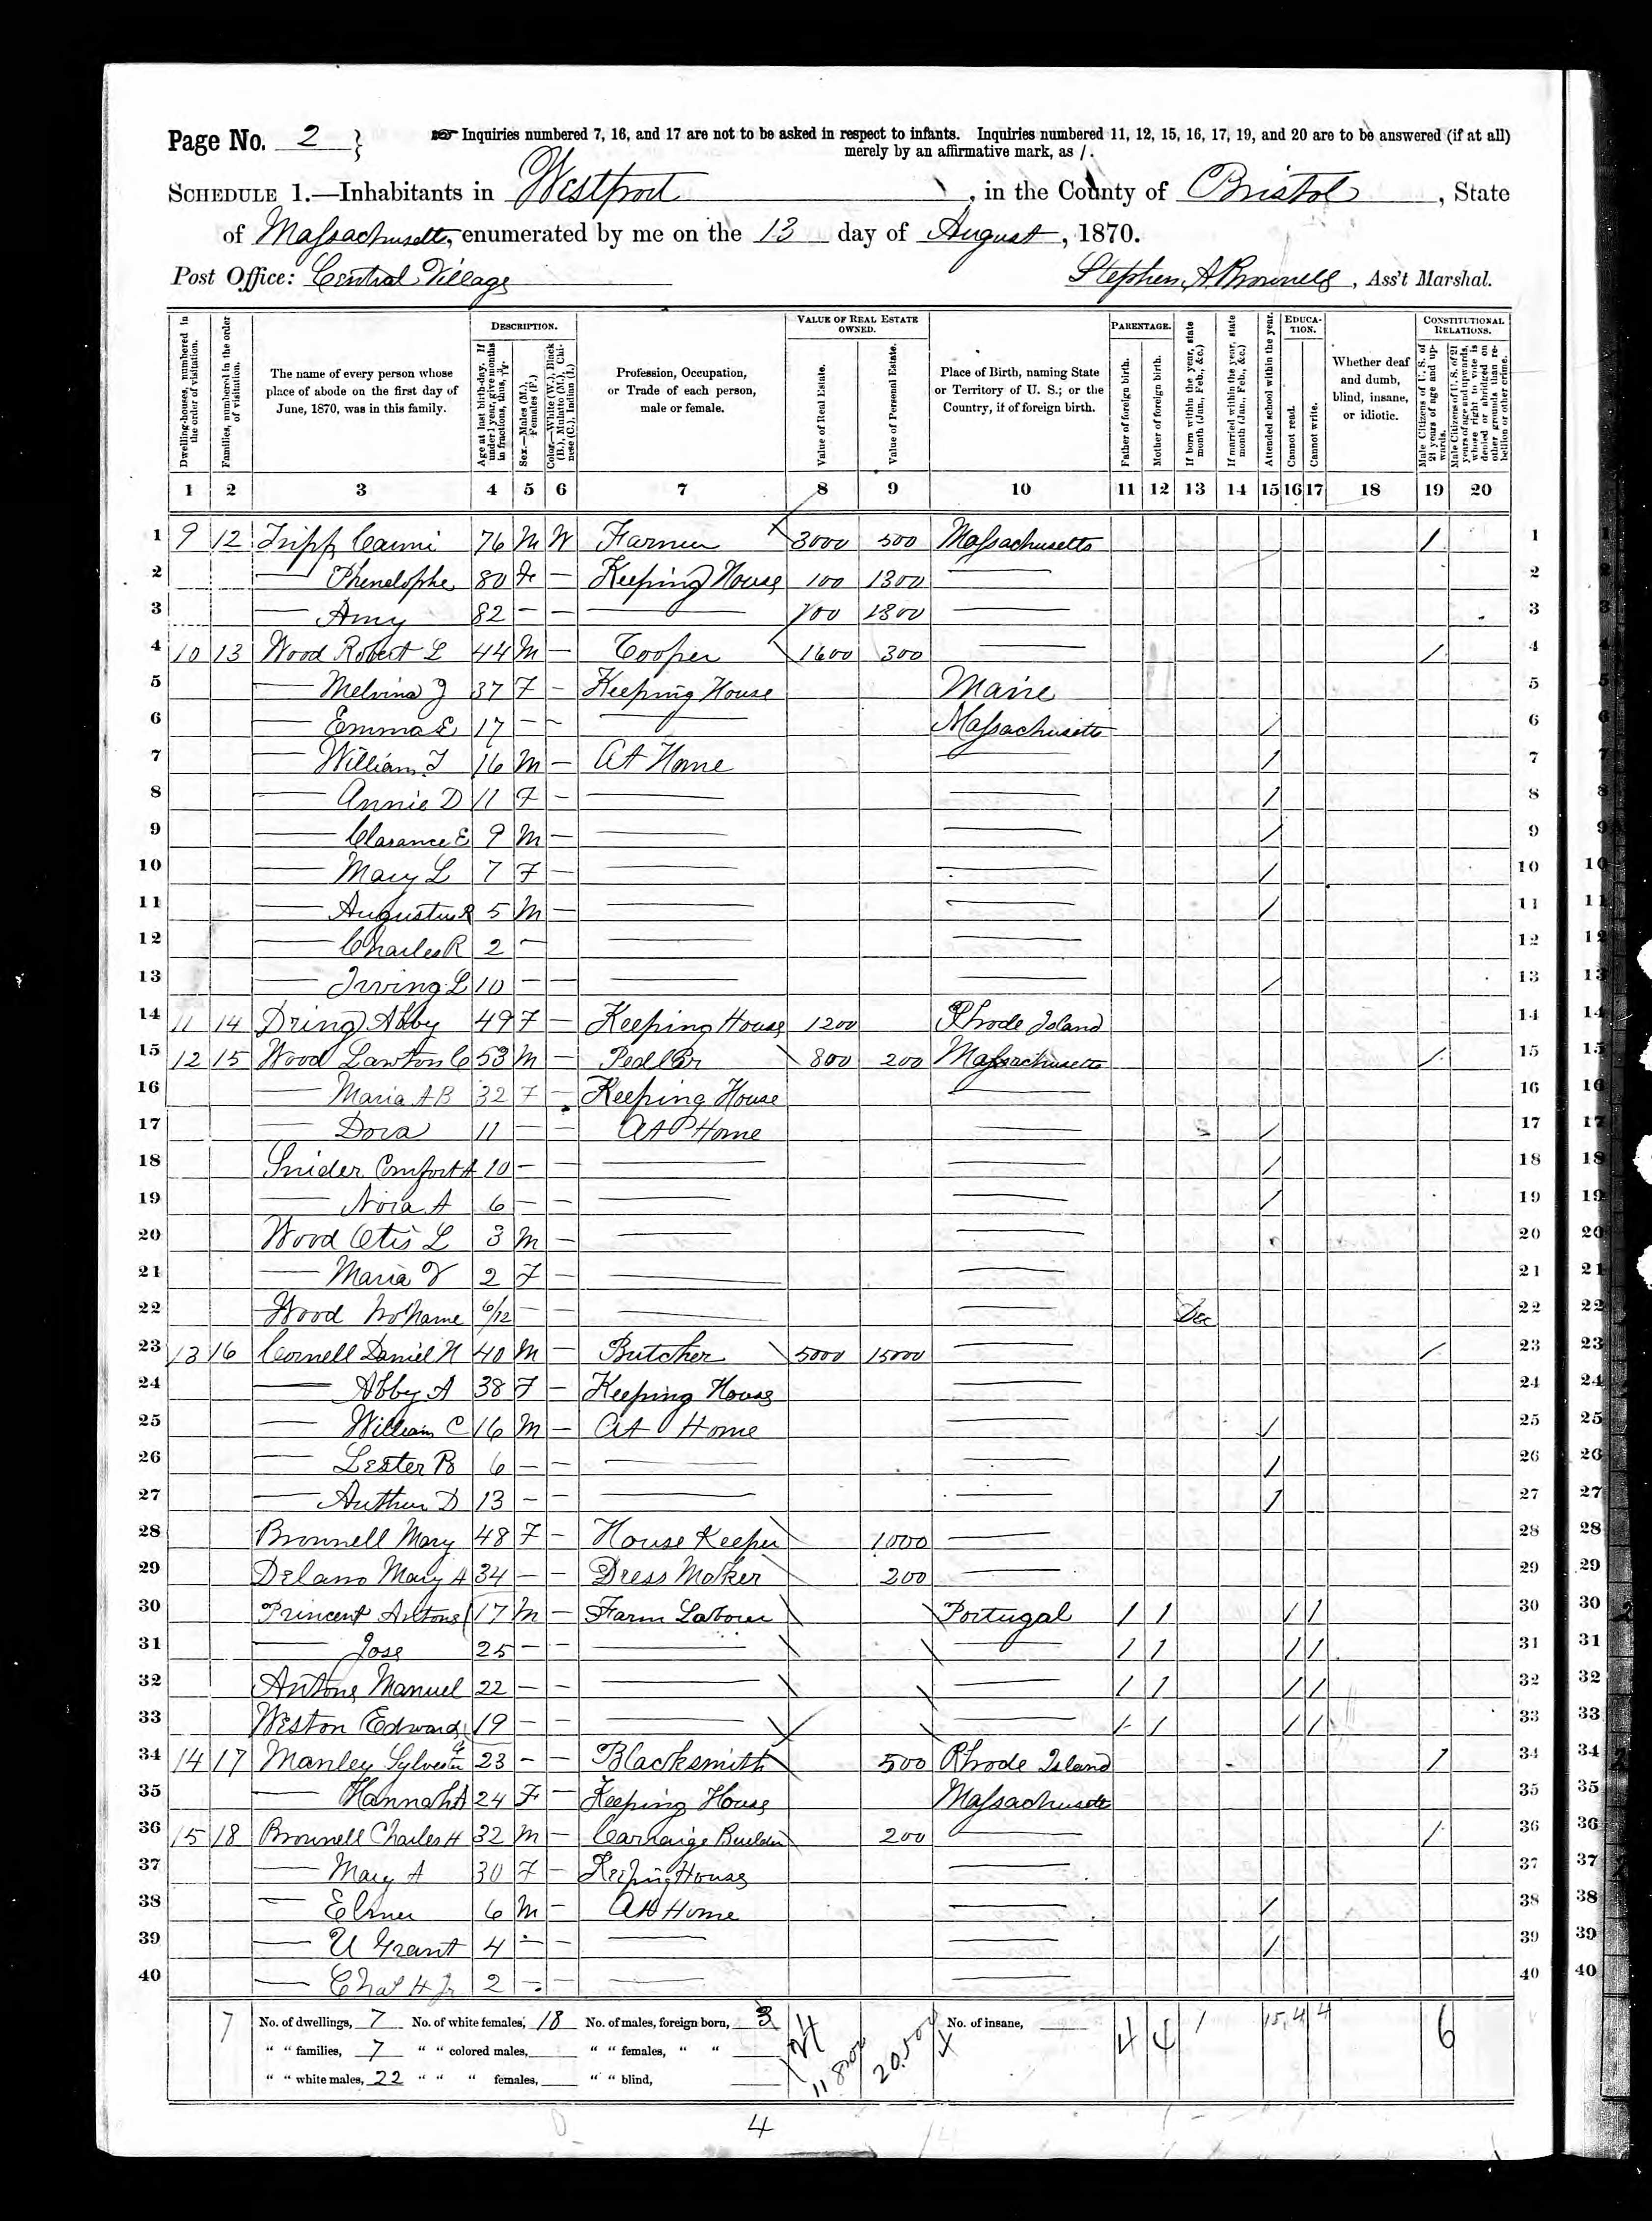 Page No. 2 } Inquiries numbered 7, 16, and 17 are not to be asked in respect to infants. Inquiries numbered 11, 12, 15, 16, 17, 19, and 20 are to be answered (if at all)
merely by an affirmative mark, as /.
SCHEDULE 1.—Inhabitants in Westport, in the County of Bristol, State
of Massachusetts, enumerated by me on the 13 day of August, 1870.
Post Office: Central Village Stephen A Brownell, Ass't Marshal.
Dwelling-houses, numbered in the order of visitation.
Families, numbered in the order of visitation.
The name of every person whose place of abode on the first day of June, 1870, was in this family.
DESCRIPTION.
Age at last birth-day. If under 1 year, give months in fractions, thus, 3/12.
Sex.—Males (M.), Females (F.)
Color.—White (W.), Black (B.), Mulatto (M.), Chinese (C.), Indian (I.)
Profession, Occupation, or Trade of each person, male or female.
VALUE OF REAL ESTATE OWNED.
Value of Real Estate.
Value of Personal Estate.
Place of Birth, naming State or Territory of U. S.; or the Country, if of foreign birth.
PARENTAGE.
Father of foreign birth.
Mother of foreign birth.
If born within the year, state month (Jan., Feb., &c.)
If married within the year, state month (Jan., Feb., &c.)
Attended school within the year.
EDUCATION.
Cannot read.
Cannot write.
Whether deaf and dumb, blind, insane, or idiotic.
CONSTITUTIONAL RELATIONS.
Male Citizens of U. S. of 21 years of age and upwards.
Male Citizens of U. S. of 21 years of age and upwards, whose right to vote is denied or abridged on other grounds than rebellion or other crime.
1 2 3 4 5 6 7 8 9 10 11 12 13 14 15 16 17 18 19 20
1 9 12 Tripp 76 M W Farmer 3000 500 Massachusetts / 1
2 — Phenelophe 80 Fe — Keeping House 100 1300 — 2
3 — Amy 82 — — — 100 1300 — 3
4 10 13 Wood Robert L 44 M — Cooper 1600 300 — / 4
5 — Melvina J 37 F — Keeping House Maine 5
6 — Emma E 17 — — — Massachusetts / 6
7 — William T 16 M — At Home — / 7
8 — Annie D 11 F — — — / 8
9 — Clarance E 9 M — — — / 9
10 — Mary L 7 F — — — / 10
11 — Augustus R 5 M — — — / 11
12 — Charles R 2 — — — 12
13 — Irving L 10 — — — — / 13
14 11 14 Dring Abby 49 F — Keeping House 1200 Rhode Island 14
15 12 15 Wood Lawton C 53 M — Pedler 800 200 Massachusetts / 15
16 — Maria A B 32 F — Keeping House — 16
17 — Dora 11 — — At Home — / 17
18 Snider Comfort A 10 — — — — / 18
19 — Nora A 6 — — — — / 19
20 Wood Otis L 3 M — — — 20
21 — Maria V 2 F — — — 21
22 Wood No Name 6/12 — — — — Dec 22
23 13 16 Cornell Daniel N 40 M — Butcher 5000 15000 — / 23
24 — Abby A 38 F — Keeping House — 24
25 — William C 16 M — At Home — / 25
26 — Lester B 6 — — — — / 26
27 — Authur D 13 — — — — / 27
28 Brownell Mary 48 F — House Keeper 1000 — 28
29 Delano Mary A 34 — — Dress Maker 200 — 29
30 Princent Antone 17 M — Farm Laborer Portugal / / / / 30
31 — Jose 25 — — — — / / / / 31
32 Antone Manuel 22 — — — — / / / / 32
33 Weston Edward 19 — — — — / / / / 33
34 14 17 Manley Sylvester G 23 — — Blacksmith 500 Rhode Island / 34
35 — Hannah A 24 F — Keeping House Massachusetts 35
36 15 18 Brownell Charles H 32 M — Carraige Builder 200 — / 36
37 — Mary A 30 F — Keeping House — 37
38 — Elmer 6 M — At Home — / 38
39 — U Grant 4 — — — — / 39
40 — Chas H Jr 2 — — — — 40
7 No. of dwellings, 7 No. of white females, 18 No. of males, foreign born, 3 No. of insane, 4 4 1 15 4 4 6
" " families, 7 " " colored males, " " females, " " 11800 20,500
" " white males, 22 " " " females, " " blind,
4